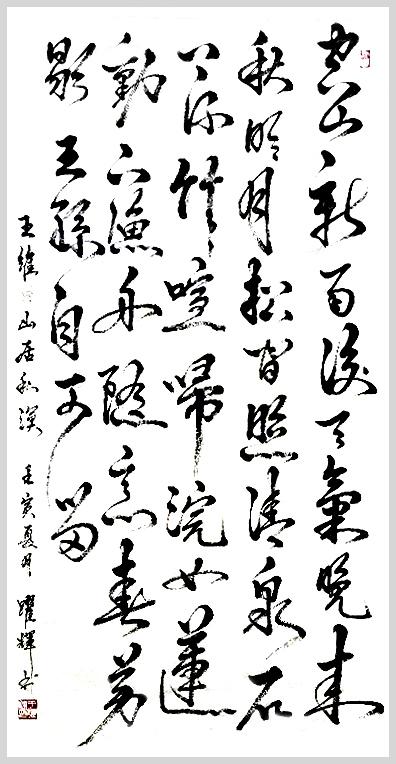 空山新雨後天氣晚來
秋明月松間照清泉石
上流竹喧歸浣女蓮
動下漁舟隨意春芳
歇王孫自可留
王維山居秋暝 壬寅夏月 耀輝書